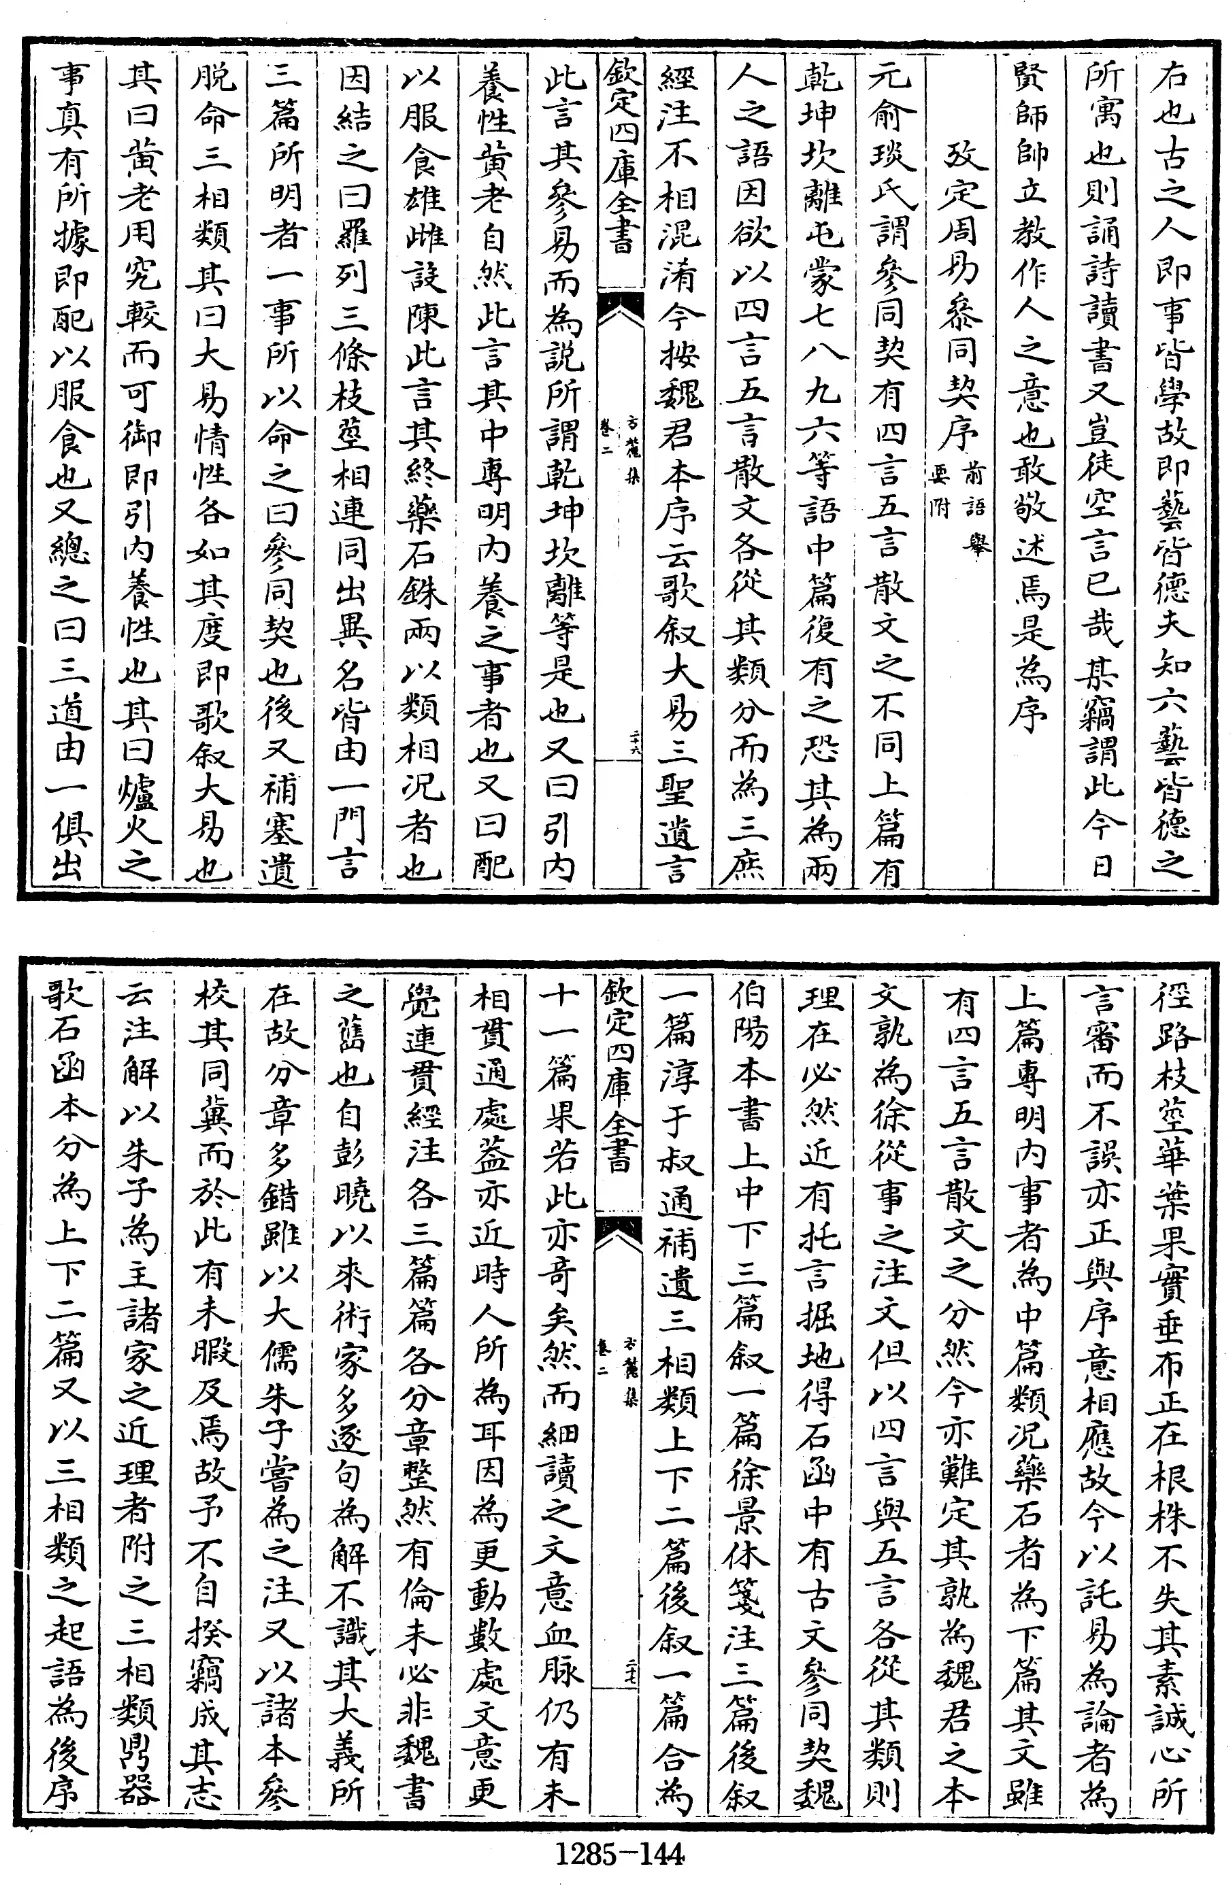 右也古之人即事皆學故即藝皆德夫知六藝皆德之
所寓也則誦詩讀書又豈徒空言已哉某竊謂此今日
賢師帥立教作人之意也敢敬述焉是為序
攷定周易叅同契序前語舉要附
元俞琰氏謂參同契有四言五言散文之不同上篇有
乾坤坎離屯蒙七八九六等語中篇復有之恐其為兩
人之語因欲以四言五言散文各從其類分而為三庶
經注不相混淆今按魏君本序云歌叙大易三聖遺言
欽定四庫全書
方麓集
卷二
二十六
此言其參易而為說所謂乾坤坎離等是也又曰引內
養性黃老自然此言其中專明內養之事者也又曰配
以服食雄雌設陳此言其終藥石銖兩以類相况者也
因結之曰羅列三條枝莖相連同出異名皆由一門言
三篇所明者一事所以命之曰參同契也後又補塞遺
脫命三相類其曰大易情性各如其度即歌叙大易也
其曰黃老用究較而可御即引內養性也其曰爐火之
事真有所據即配以服食也又總之曰三道由一俱出
徑路枝莖華葉果實垂布正在根株不失其素誠心所
言審而不誤亦正與序意相應故今以託易為論者為
上篇專明內事者為中篇類况藥石者為下篇其文雖
有四言五言散文之分然今亦難定其孰為魏君之本
文孰為徐從事之注文但以四言與五言各從其類則
理在必然近有托言掘地得石函中有古文參同契魏
伯陽本書上中下三篇叙一篇徐景休箋注三篇後叙
一篇淳于叔通補遺三相類上下二篇後叙一篇合為
欽定四庫全書
方麓集
卷二
二十七
十一篇果若此亦奇矣然而細讀之文意血脉仍有未
相貫通處葢亦近時人所為耳因為更動數處文意更
覺連貫經注各三篇篇各分章整然有倫未必非魏書
之舊也自彭曉以來術家多逐句為解不識其大義所
在故分章多錯雖以大儒朱子嘗為之注又以諸本參
校其同冀而於此有未暇及焉故予不自揆竊成其志
云注解以朱子為主諸家之近理者附之三相類鼎器
歌石函本分為上下二篇又以三相類之起語為後序
1285-144